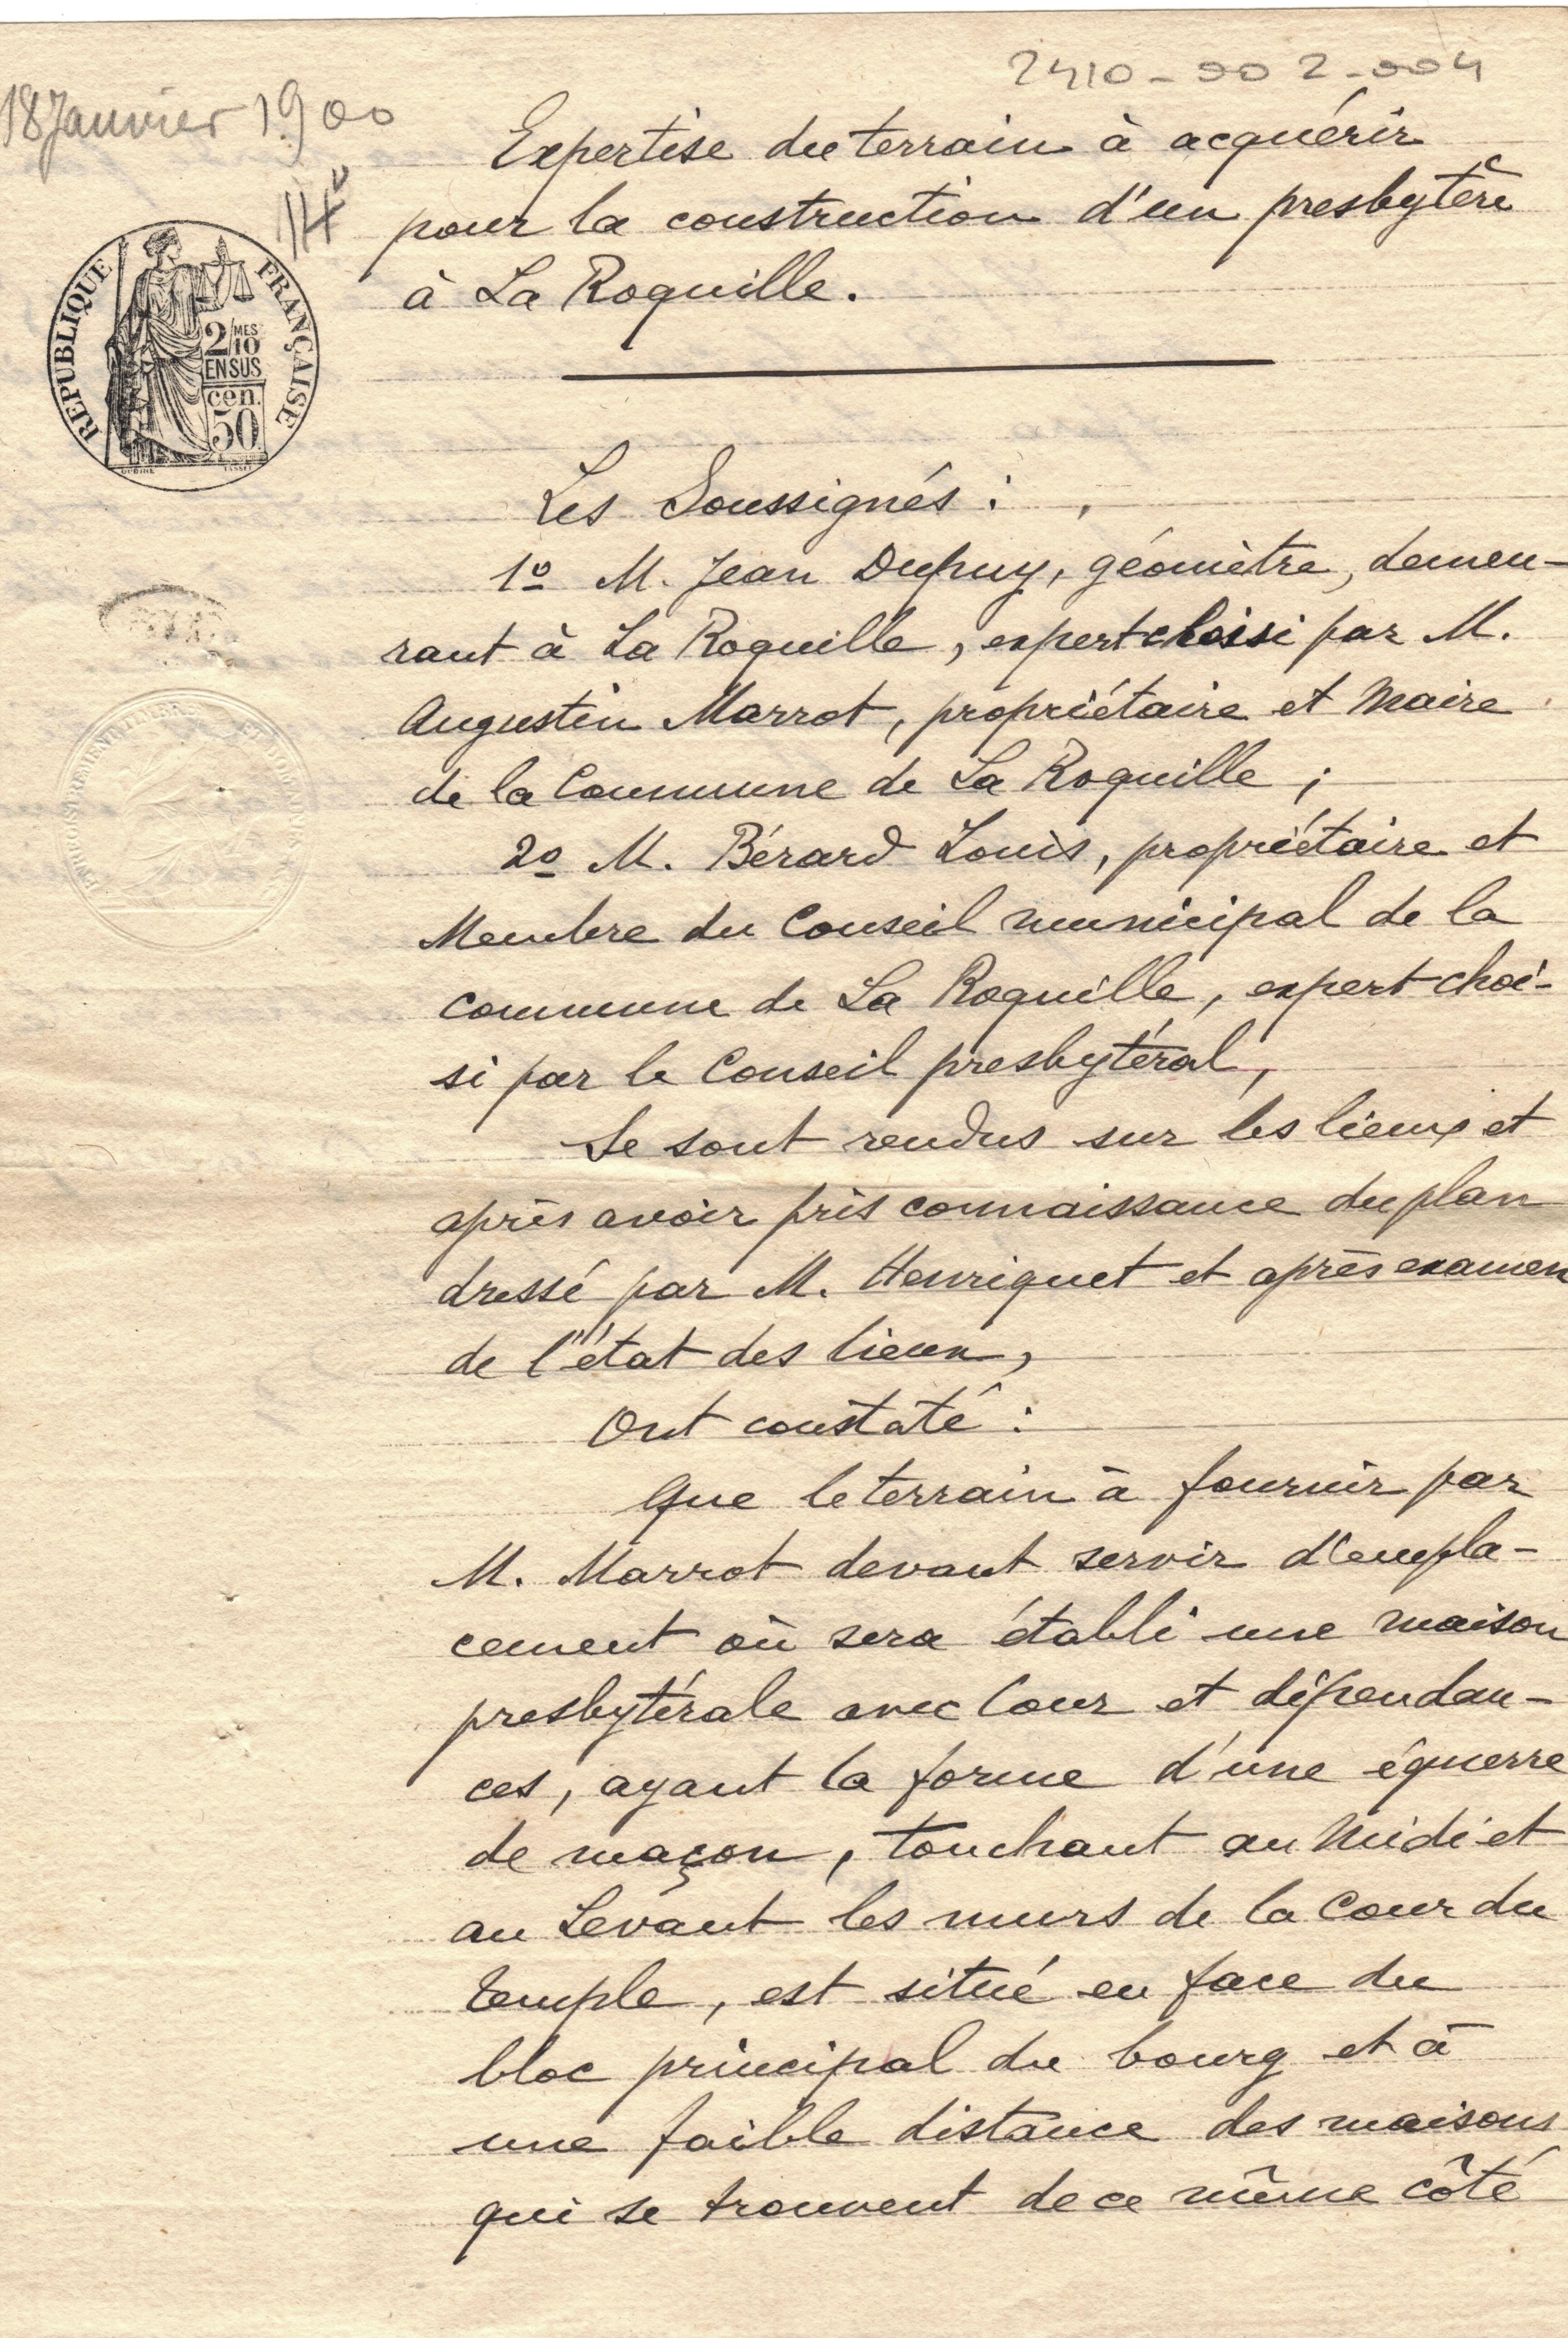 2410-002-004
18 Janvier 1900
Expertise du terrain à acquérir
pour la construction d'un presbytère
à La Roquille.
RÉPUBLIQUE FRANÇAISE
2/10 MES
EN SUS
cen.
50
Les Soussignés :
1º M. Jean Dupuy, géomètre, demeu-
rant à La Roquille, expert choisi par M.
Augustin Marrot, propriétaire et Maire
de la Commune de La Roquille ;
2º M. Bérard Louis, propriétaire et
Membre du Conseil municipal de la
commune de La Roquille, expert choi-
si par le Conseil presbytéral,
Se sont rendus sur les lieux et
après avoir pris connaissance du plan
dressé par M. Henriquet et après examen
de l'état des lieux,
Ont constaté :
Que le terrain à fournir par
M. Marrot devant servir d'empla-
cement où sera établi une maison
presbytérale avec Cour et dépendan-
ces, ayant la forme d'une équerre
de maçon, touchant au Midi et
au Levant les murs de la Cour du
Temple, est situé en face du
bloc principal du bourg et à
une faible distance des maisons
qui se trouvent de ce même côté